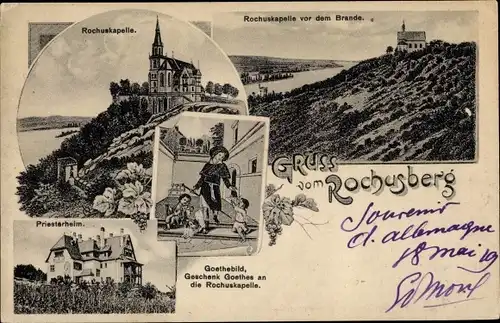 Rochuskapelle.
Rochuskapelle vor dem Brande.
Gruss
vom Rochusberg
Souvenir
d. allemagne
18 mai 19
Priesterheim.
Goethebild,
Geschenk Goethes an
die Rochuskapelle.